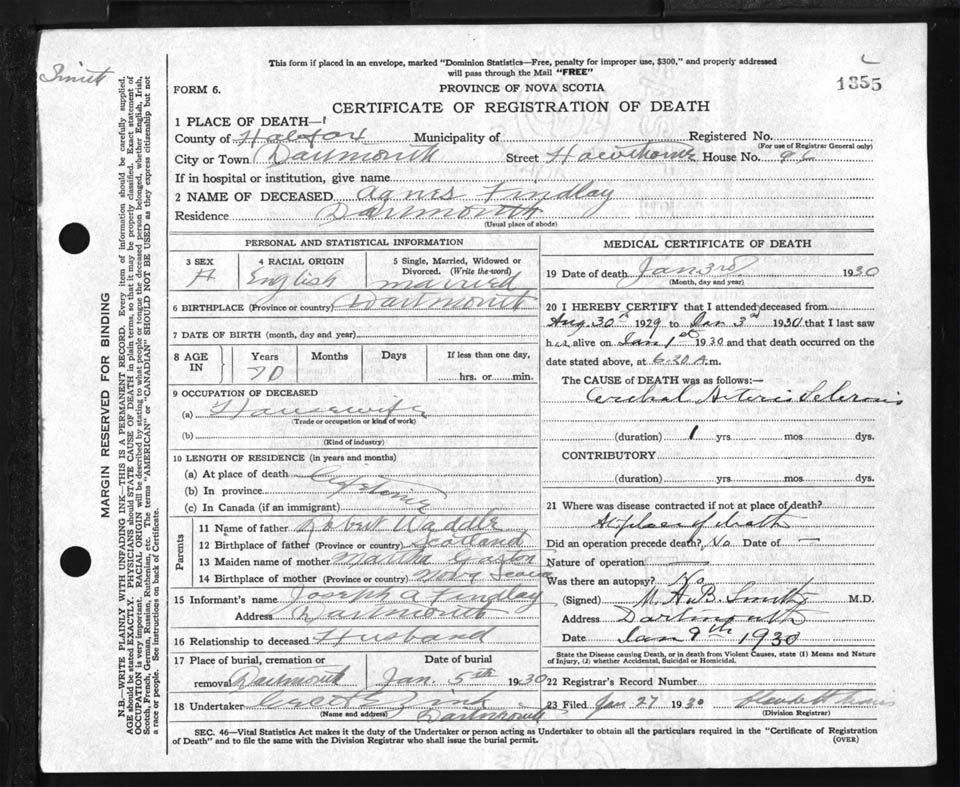 Smith
This form if placed in an envelope, marked "Dominion Statistics—Free, penalty for improper use, $300," and properly addressed
will pass through the Mail "FREE"
1355
FORM 6.
PROVINCE OF NOVA SCOTIA
CERTIFICATE OF REGISTRATION OF DEATH
1 PLACE OF DEATH—
County of Halifax Municipality of Registered No.
(For use of Registrar General only)
City or Town Dartmouth Street Hawthorne House No.
If in hospital or institution, give name
2 NAME OF DECEASED Agnes Findlay
Residence Dartmouth
(Usual place of abode)
PERSONAL AND STATISTICAL INFORMATION
3 SEX 4 RACIAL ORIGIN 5 Single, Married, Widowed or
Divorced. (Write the word)
English married
6 BIRTHPLACE (Province or country) Dartmouth
7 DATE OF BIRTH (month, day and year)
8 AGE IN Years Months Days If less than one day,
70 hrs. or min.
9 OCCUPATION OF DECEASED
(a) Housewife
(Trade or occupation or kind of work)
(b)
(Kind of industry)
10 LENGTH OF RESIDENCE (in years and months)
(a) At place of death
(b) In province Lifetime
(c) In Canada (if an immigrant)
Parents
11 Name of father Robert Waddle
12 Birthplace of father (Province or country) Scotland
13 Maiden name of mother Martha
14 Birthplace of mother (Province or country) Nova Scotia
15 Informant's name Joseph A Findlay
Address Dartmouth
16 Relationship to deceased Husband
17 Place of burial, cremation or Date of burial
removal Dartmouth Jan. 5th 1930
18 Undertaker
(Name and address) Dartmouth
MEDICAL CERTIFICATE OF DEATH
19 Date of death Jan 3rd 1930
(Month, day and year)
20 I HEREBY CERTIFY that I attended deceased from
Aug 30th 1929 to Jan 3rd 1930 that I last saw
her alive on Jan 1st 1930 and that death occurred on the
date stated above, at 6.30 A.m.
The CAUSE OF DEATH was as follows:—
Cerebral Arterio Sclerosis
(duration) 1 yrs mos dys.
CONTRIBUTORY
(duration) yrs mos dys.
21 Where was disease contracted if not at place of death?
At place of death
Did an operation precede death? No Date of —
Nature of operation —
Was there an autopsy? No
(Signed) M. A. B. Smith M.D.
Address Dartmouth
Date Jan 9th 1930
State the Disease causing Death, or in death from Violent Causes, state (1) Means and Nature
of Injury, (2) whether Accidental, Suicidal or Homicidal.
22 Registrar's Record Number
23 Filed Jan 27 1930
(Division Registrar)
SEC. 46—Vital Statistics Act makes it the duty of the Undertaker or person acting as Undertaker to obtain all the particulars required in the "Certificate of Registration
of Death" and to file the same with the Division Registrar who shall issue the burial permit.
(OVER)
MARGIN RESERVED FOR BINDING
N.B.—WRITE PLAINLY WITH UNFADING INK—THIS IS A PERMANENT RECORD. Every item of information should be carefully supplied.
AGE should be stated EXACTLY. PHYSICIANS should STATE CAUSE OF DEATH in plain terms, so that it may be properly classified. Exact statement of
OCCUPATION is very important. RACIAL ORIGIN will be described by stating to what people or tongue the deceased person belonged, whether English, Irish,
Scotch, French, German, Russian, Ruthenian, etc. The terms "AMERICAN" or "CANADIAN" SHOULD NOT BE USED as they express citizenship but not
a race or people. See instructions on back of Certificate.